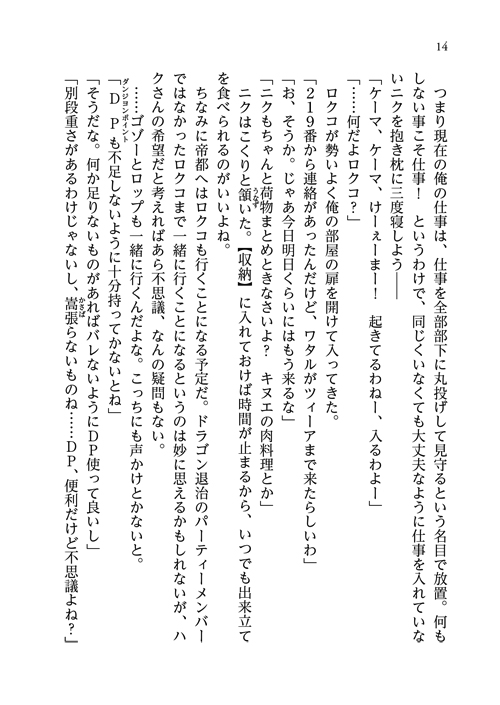 14
つまり現在の俺の仕事は、仕事を全部部下に丸投げして見守るという名目で放置。何も
しない事こそ仕事！　というわけで、同じくいなくても大丈夫なように仕事を入れていな
いニクを抱き枕に三度寝しよう――
「ケーマ、ケーマ、けーぇーまー！　起きてるわねー、入るわよー」
「……何だよロクコ？」
ロクコが勢いよく俺の部屋の扉を開けて入ってきた。
「219番から連絡があったんだけど、ワタルがツィーアまで来たらしいわ」
「お、そうか。じゃあ今日明日くらいにはもう来るな」
「ニクもちゃんと荷物まとめときなさいよ？　キヌエの肉料理とか」
ニクはこくりと頷いた。【収納】に入れておけば時間が止まるから、いつでも出来立て
を食べられるのがいいよね。
ちなみに帝都へはロクコも行くことになる予定だ。ドラゴン退治のパーティーメンバー
ではなかったロクコまで一緒に行くことになるというのは妙に思えるかもしれないが、ハ
クさんの希望だと考えればあら不思議、なんの疑問もない。
……ゴゾーとロップも一緒に行くんだよな。こっちにも声かけとかないと。
「DPも不足しないように十分持ってかないとね」
「そうだな。何か足りないものがあればバレないようにDP使って良いし」
「別段重さがあるわけじゃないし、嵩張らないものね……DP、便利だけど不思議よね？」
うなず
ダンジョンポイント
かさば